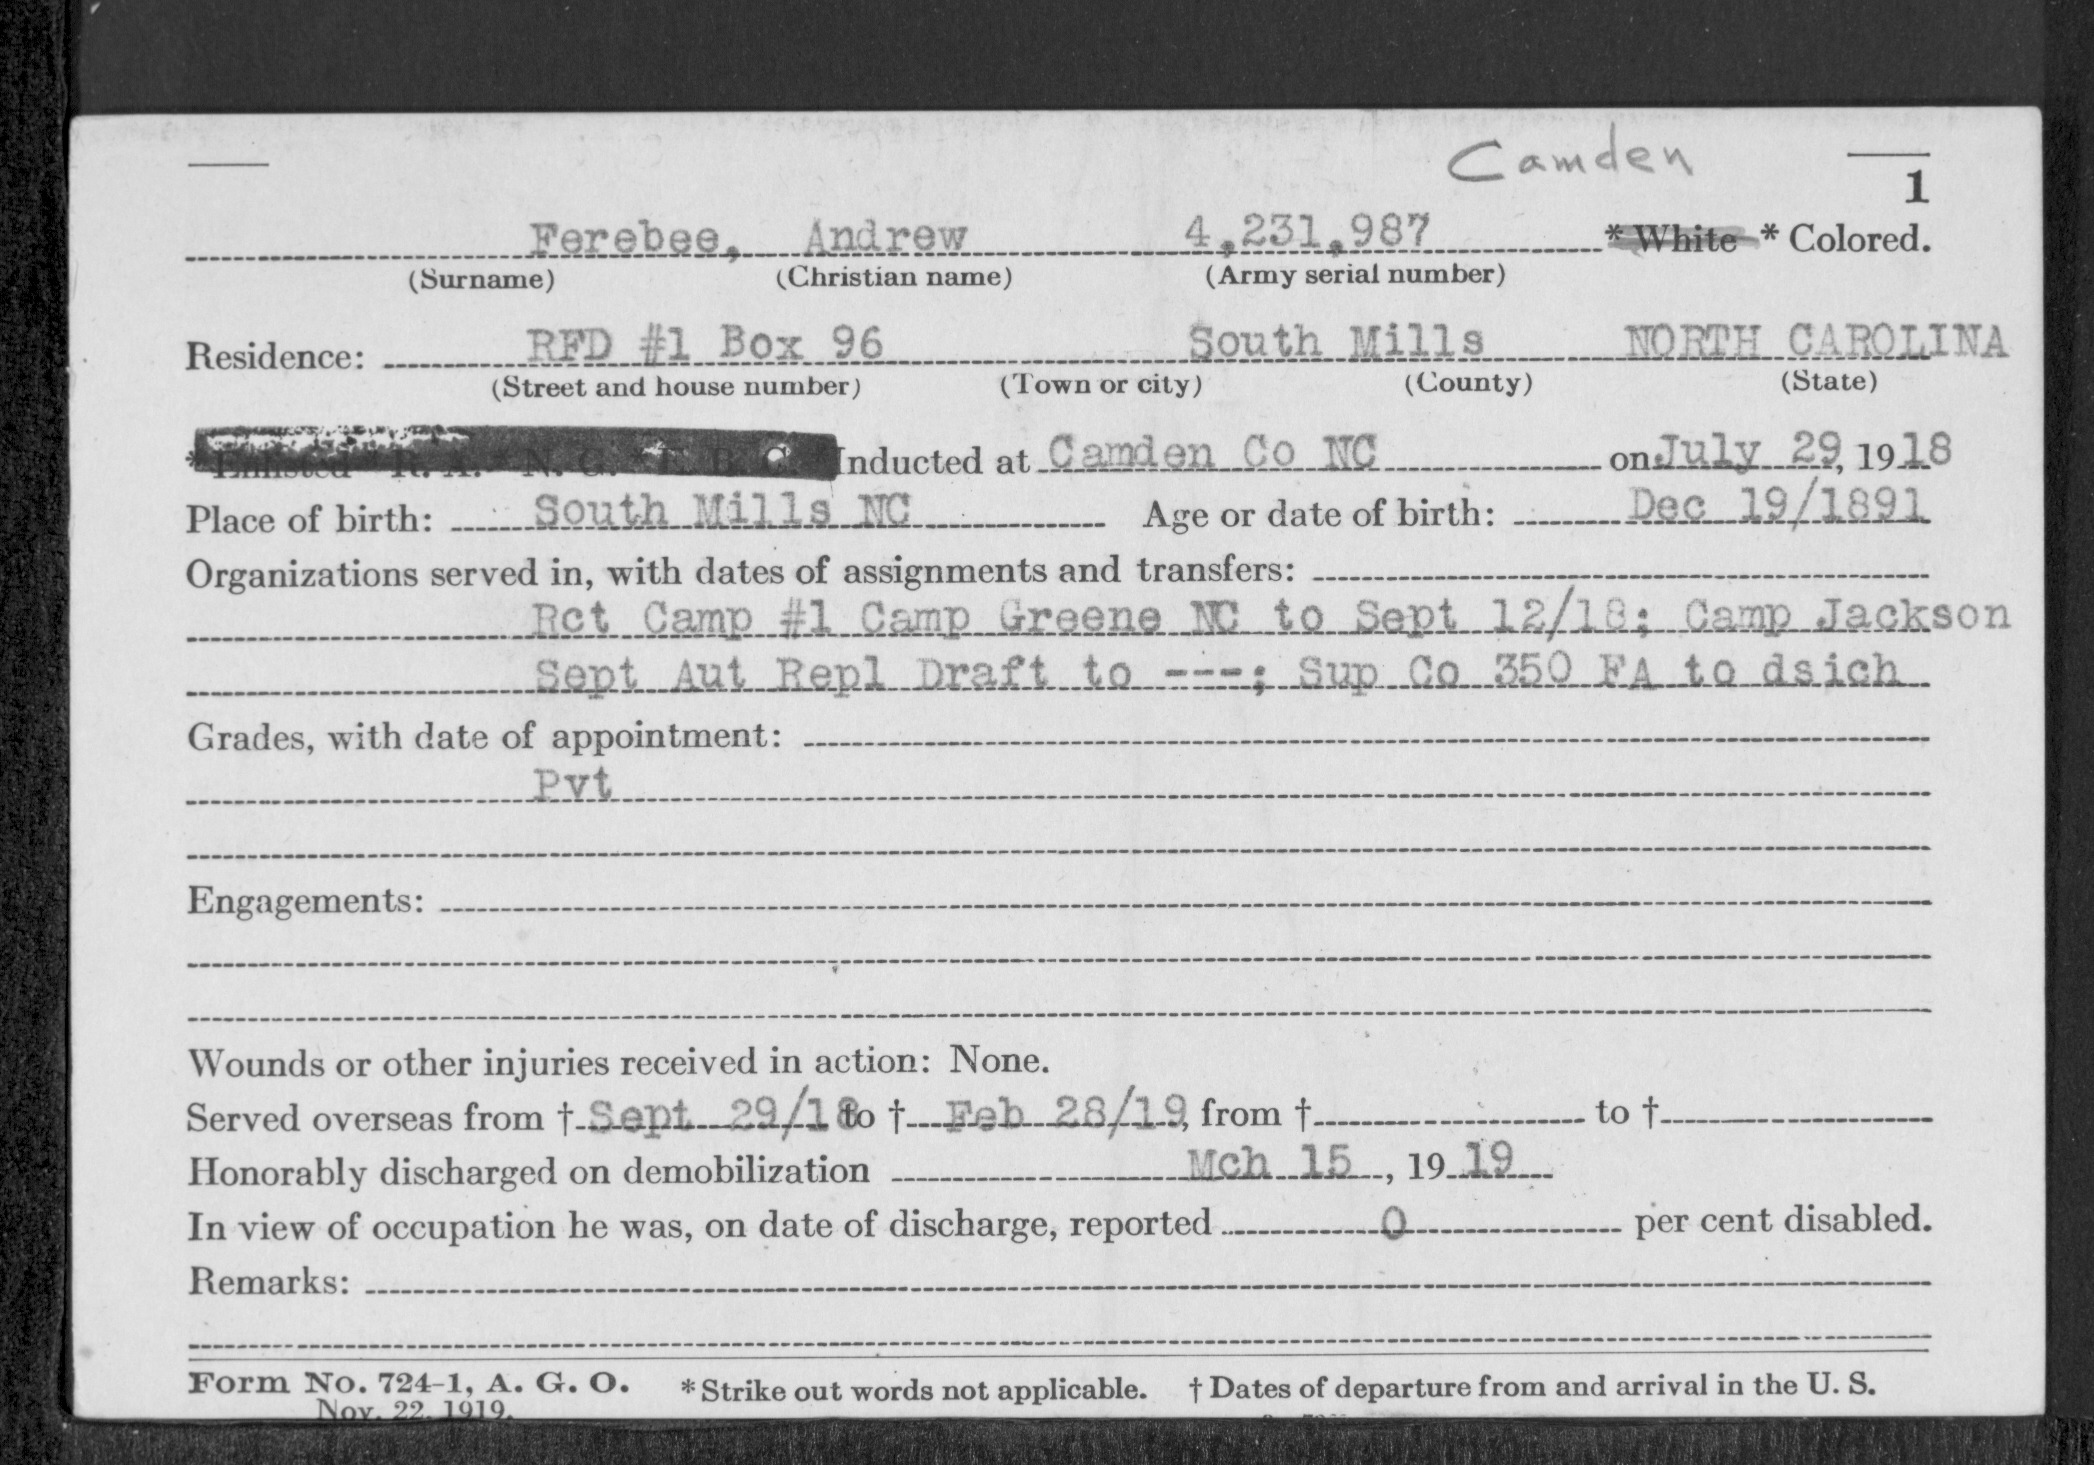 Camden
1
Ferebee, Andrew 4,231,987 * White * Colored.
(Surname) (Christian name) (Army serial number)
Residence: RFD #1 Box 96 South Mills NORTH CAROLINA
(Street and house number) (Town or city) (County) (State)
* Enlisted * R. A. * N. G. * E. R. C. * Inducted at Camden Co NC on July 29, 1918
Place of birth: South Mills NC Age or date of birth: Dec 19/1891
Organizations served in, with dates of assignments and transfers:
Rct Camp #1 Camp Greene NC to Sept 12/18; Camp Jackson
Sept Aut Repl Draft to ---; Sup Co 350 FA to dsich
Grades, with date of appointment:
Pvt
Engagements:
Wounds or other injuries received in action: None.
Served overseas from † Sept 29/18 to † Feb 28/19, from † to †
Honorably discharged on demobilization Mch 15, 19 19
In view of occupation he was, on date of discharge, reported 0 per cent disabled.
Remarks:
Form No. 724-1, A. G. O. * Strike out words not applicable. † Dates of departure from and arrival in the U. S.
Nov. 22, 1919.